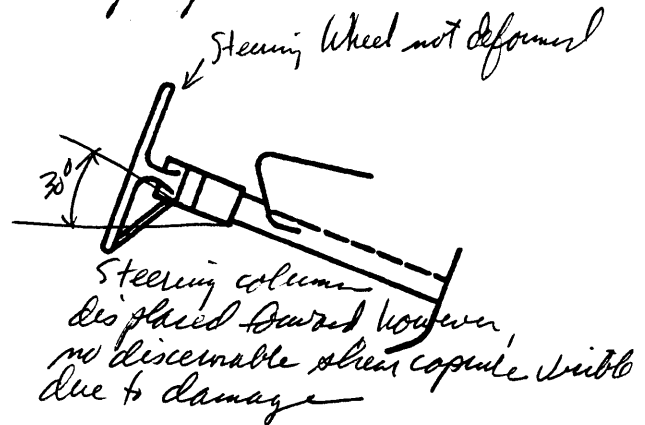 Steering Wheel not deformed
30°
Steering column
displaced forward, however,
no discernable shear capsule visible
due to damage